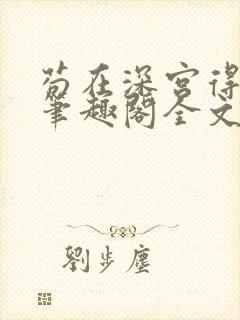 苟在深宫得
笔趣阁全文
刘步尘